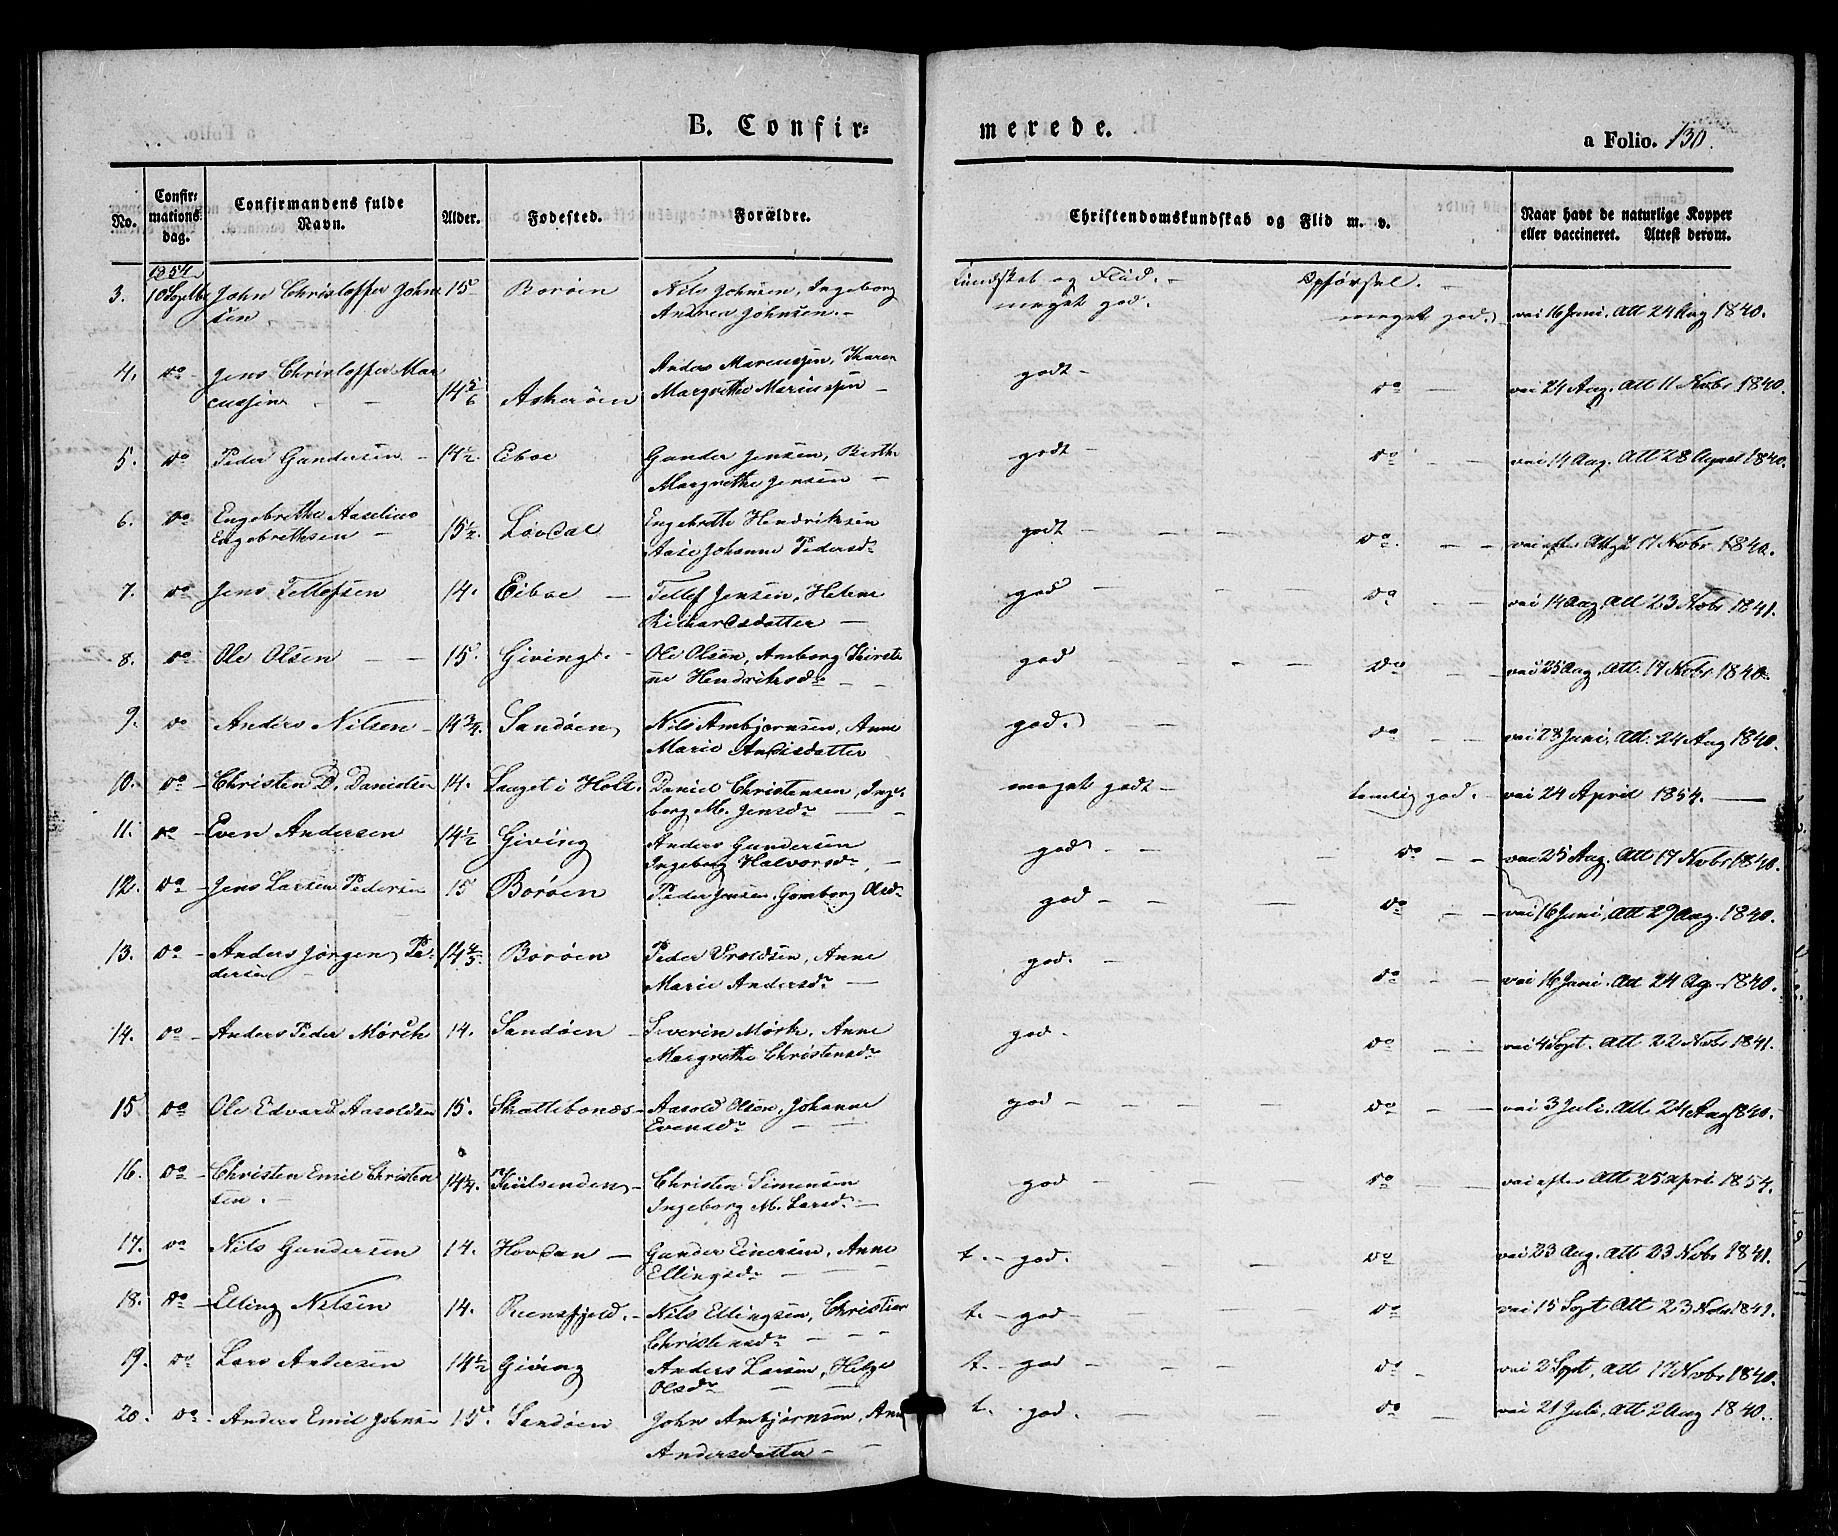 B. Confir=
merede.
a Folio. 130.
No.
Confir=
mations
dag.
Confirmandens fulde
Navn.
Alder.
Fødested.
Forældre.
Christendomskundskab og Flid m. v.
Naar havt de naturlige Kopper
eller vaccineret. Attest derom.
1854
3. 10 Septbr John Christopher John= 15 Borøen Nils Johnsen, Ingeborg Kundskab og Flid. - Opførsel. -
sen Andrea Johnsen. - meget god. - meget god. vac 16 Juni. Att 24 Aug 1840.
4. do Jens Christopher Mar Anders Marcussen, Karen godt -
cussen 14 5/6 Askerøen Margrethe Marcussen - do vac 24 Aug. Att 11 Novbr 1840.
5. do Peder Gundersen - 14 1/2. Eiboe Gunder Jensen, Birthe godt - do - vac 14 Aug. Att 28 August 1840.
Margrethe Jensen -
6. do Engebrethe Aaselius Engebreth Hendriksen
Engebrethsen - 15 1/2. Løvdal Aase Johanne Pedersdr godt - do. - vac efter Att 17 Novbr 1840.
7. do Jens Tellefsen 14. Eiboe - Tellef Jensen, Helene god - do - vac 14 Aug. Att 23 Novbr 1841.
Richardsdatter -
8. do Ole Olsen - 15. Giving. - Ole Olsen, Amborg Kirsti god - do - vac 25 Aug. Att. 17 Novbr 1840.
ne Hendriksdr -
9. do Anders Nilsen - 14 3/4. Sandøen Nils Ambjørnsen, Anne god. - do - vac 28 Juni. Att. 24 Aug 1840.
Marie Andersdatter
10. do Christen D. Danielsen 14. Laaget i Holt. Daniel Christensen, Inge= meget godt - temlig god. - vac 24 April 1854. -
borg M. Jensdr -
11. do Even Andersen 14 1/2 Giving Anders Gundersen god - do - vac 25 Aug. Att 17 Novbr 1840.
Ingeborg Halvorsdr -
12. do Jens Larsen Pedersen 15 Borøen Peder Jensen, Gomborg Olsdr god - do - vac 16 Juni, Att 29 Aug. 1840.
13. do Anders Jørgen Pe= 14 4/5. Borøen Peder Wroldsen, Anne god. - do - vac 16 Juni. Att 24 Ag. 1840.
dersen Marie Andersdr -
14. do Anders Peder Mørch 14. Sandøen - Severin Mørk, Anne god - do - vac 4 Sept. Att 22 Novbr 1841.
Margrethe Christensdr
15. do Ole Edvard Aasoldsen 15. Skottebonæs - Aasold Olsen, Johanne god - do - vac 3 Juli. Att. 24 Aug 1840.
Evensdr -
16. do Christen Emil Christen 14 1/4. Kiilsenden - Christen Simensen god - do - vac efter Att 25 april 1854.
sen. - Ingeborg M. Larsdr -
17. do Nils Gundersen 14. Hovdan - Gunder Einersen, Anne t. - god. do vac 23 Aug. Att 23 Novbr 1841.
Ellingsdr -
18. do Elling Nilsen 14. Reensfjeld. - Nils Ellingsen, Christine t. - god - do - vac 15 Sept Att 23 Novbr 1841.
Christensdr -
19. do Lars Andersen 14 1/2 Giving Anders Larsen, Helge t. - god - do - vac 2 Sept, Att 17 Novbr 1840.
Olsdr -
20. do Anders Emil Johnsen 15. Sandøen John Ambjørnsen, Ane t. - god. - do - vac 21 Juli, Att 2 Aug 1840.
Andersdatter -